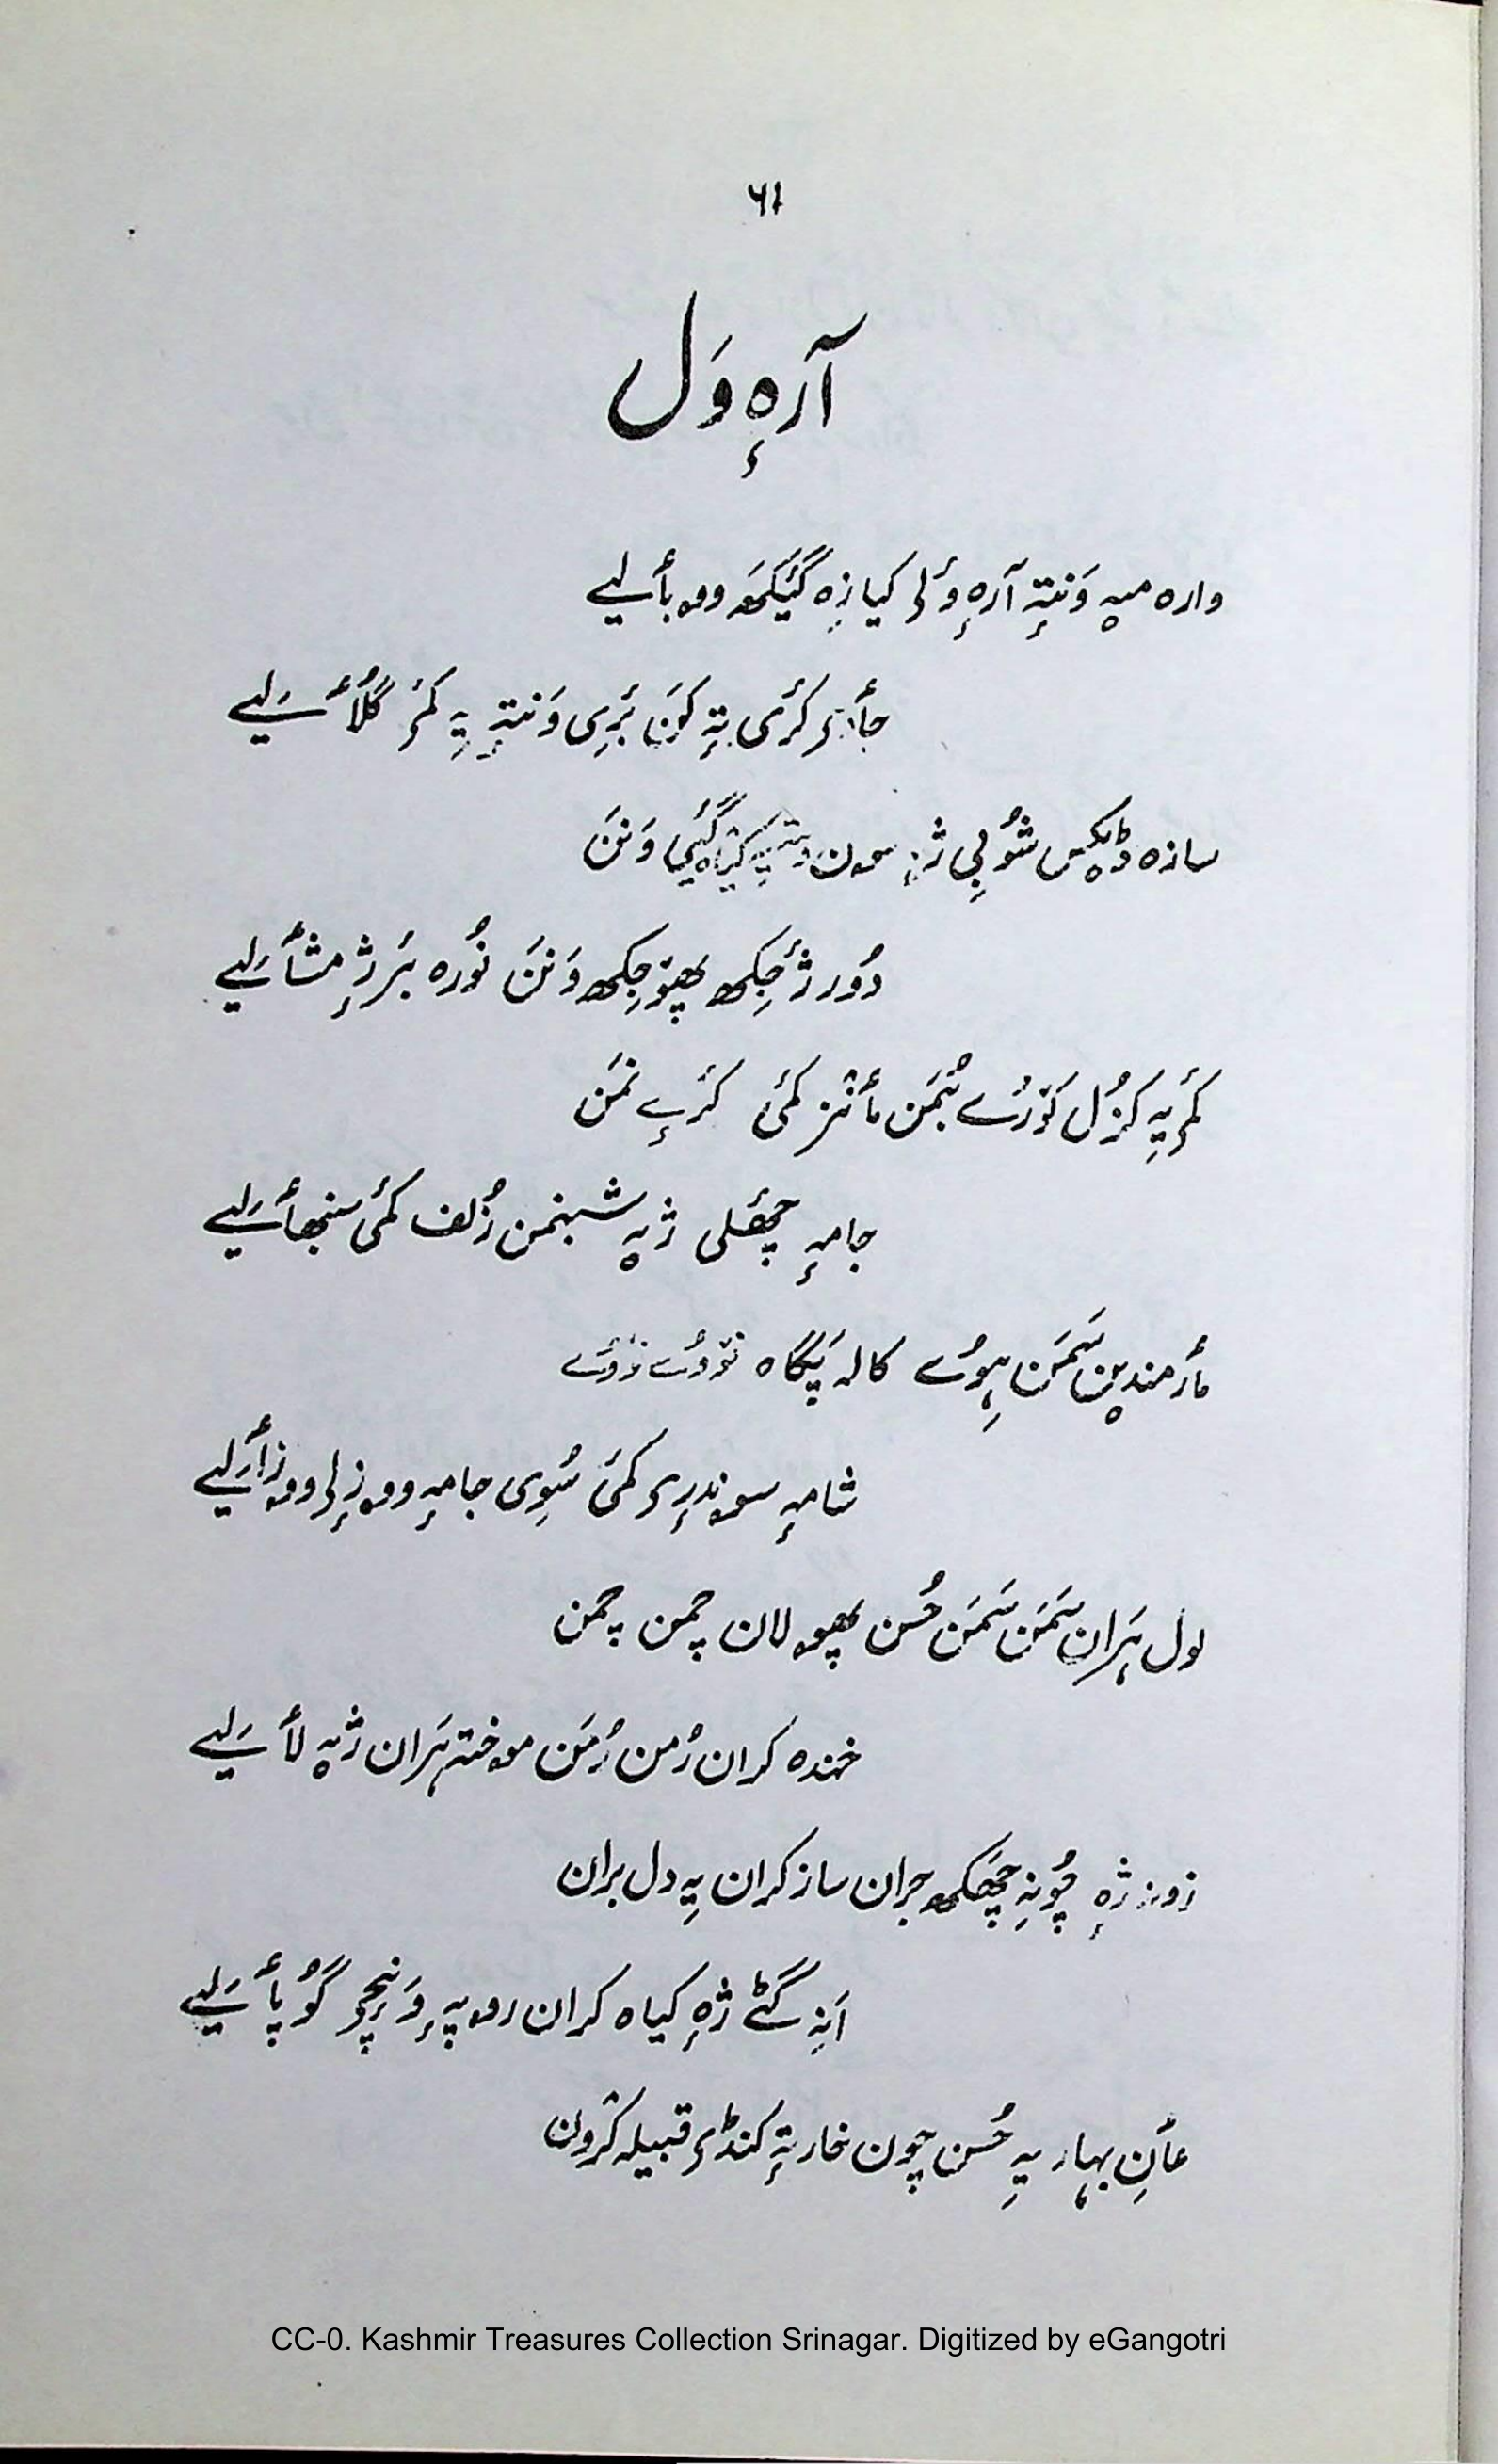 ٦١
آرٕہ وَل
وارہ میہٕ وَنتہٕ آرٕہ ؤلی کیازِہ گَیَکھ وو بٲلیے
جاے کٔری تہٕ کَون بٔرِی وَنتہٕ یہِ کمۍ گُلٲلیے
سازہ ڈیکس شُوبی ژنہٕ سون وَنن
دُور ژٔجِکھ پھیوٚجِکھ وَنَن نُورہ بٔرژٕ مشٲلیے
کٔمۍ یہِ کزُل کوٚرُے بُمَن مٲنز کٔمی کٔرۍے نمَن
جامہٕ چھٔلی ژیہٕ شبنمن زُلف کٔمی سنبھٲلیے
مٲرمندین سَمَن ہِوُے کالہ پَگاہ
شامہٕ سوندرۍ کٔمی سُوِی جامہٕ ووزلۍ ووزٲلیے
لول ہَران سَمَن سَمَن حُسن پھولان چمن چمن
خندہ کران رُمن رُمَن موختہ ہَران ژیہٕ لٲلیے
زونہ ژہٕ چُونہِ چھَکھ جران ساز کران یہِ دل بران
اَنہِ گٹے ژہٕ کیاہ کران روپہٕ وَنِچۍ گُوپٲلیے
عٲنِ بہار یہِ حُسن چون خار تہٕ کنڈۍ قبیلہ کرٛون
CC-0. Kashmir Treasures Collection Srinagar. Digitized by eGangotri